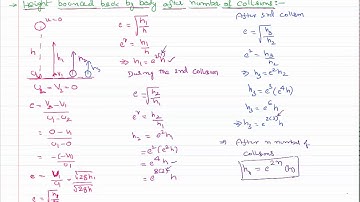 → Height bounced back by body after number of collisions:-
u=0
h
h₁
h₂
u₂ = v₂ = 0
e = v₂ - v₁ / u₁ - u₂
= 0 - v₁ / u₁ - 0
= -(-v₁) / u₁
e = v₁ / u₁ = √2gh₁ / √2gh
e = √h₁/h
e = √h₁/h
e² = h₁/h
⇒ h₁ = e²⁽¹⁾h
During the 2nd collision
e = √h₂/h₁
e² = h₂/h₁
h₂ = e²h₁
= e²(e²h)
= e⁴h
= e²⁽²⁾h
After 3rd collision
e = √h₃/h₂
e² = h₃/h₂
⇒ h₃ = e²h₂
h₃ = e²(e⁴h)
h₃ = e⁶h
⇒ h₃ = e²⁽³⁾h
⇒ After n number of
collisions
hₙ = e²ⁿ(h)